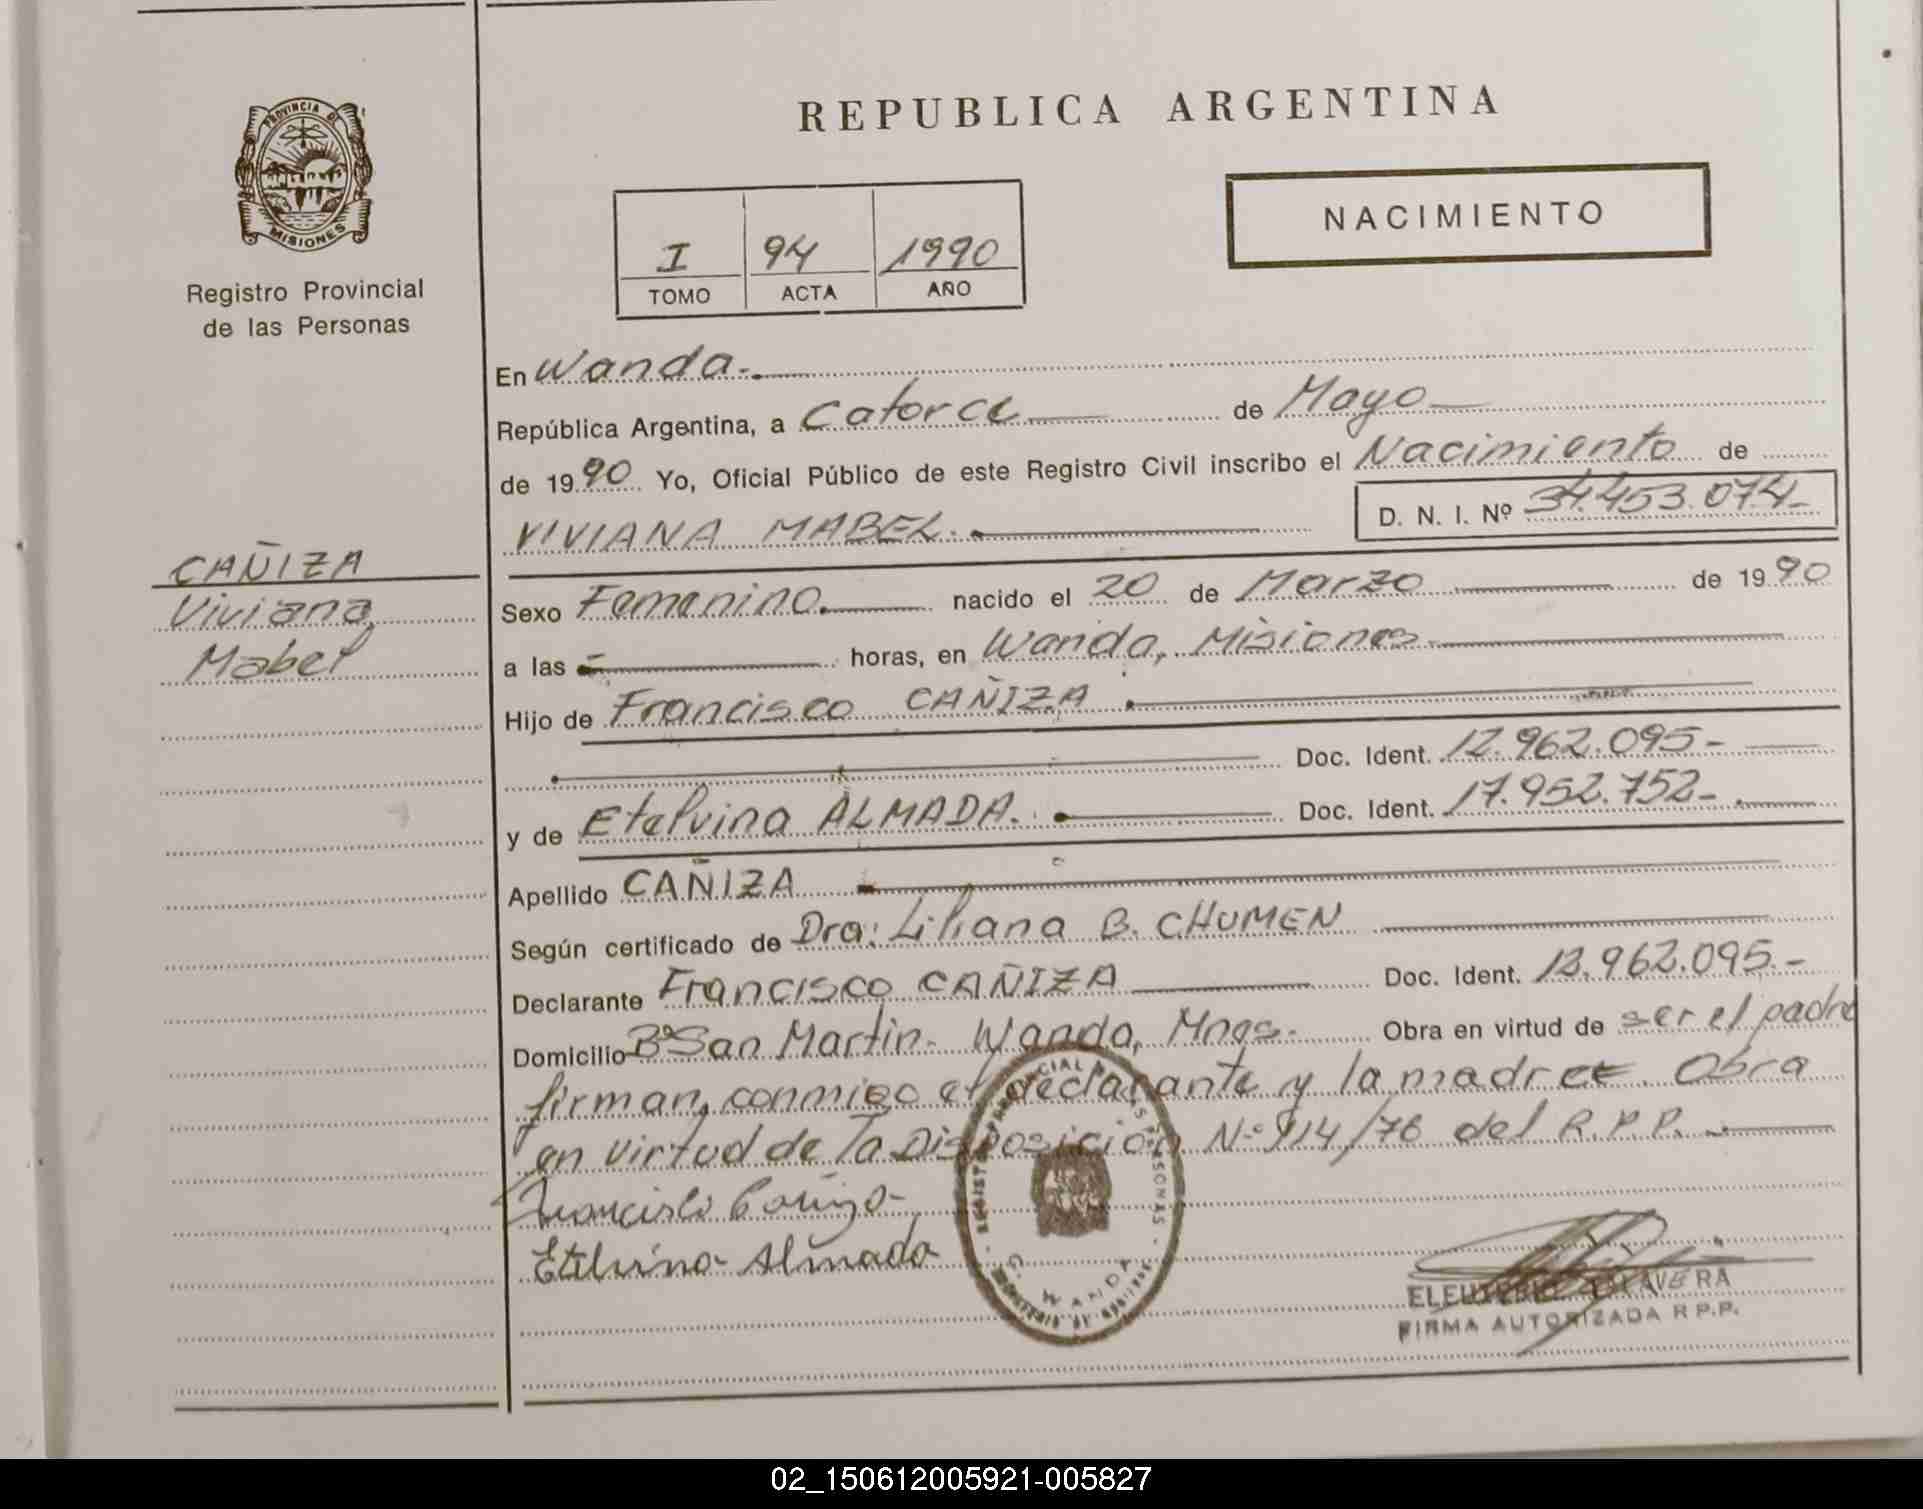 PROVINCIA DE
MISIONES
Registro Provincial
de las Personas
CAÑIZA
Viviana
Mabel
REPUBLICA ARGENTINA
I 94 1990
TOMO ACTA AÑO
NACIMIENTO
En Wanda.
República Argentina, a Catorce de Mayo
de 1990 Yo, Oficial Público de este Registro Civil inscribo el Nacimiento de
VIVIANA MABEL. D. N. I. Nº 34.453.074-
Sexo Femenino. nacido el 20 de Marzo de 1990
a las - horas, en Wanda, Misiones
Hijo de Francisco CAÑIZA
Doc. Ident. 12.962.095-
y de Etelvina ALMADA. Doc. Ident. 17.952.752-
Apellido CAÑIZA
Según certificado de Dra: Liliana B. CHUMEN
Declarante Francisco CAÑIZA Doc. Ident. 12.962.095.-
Domicilio Bº San Martin- Wanda, Mnes.- Obra en virtud de ser el padre
firman, conmigo el declarante y la madre. Obra
en virtud de la Disposición Nº 914/76 del R.P.P.
Francisco Cañiza
Etelvina Almada
WANDA
ELEUTERIO TALAVERA
FIRMA AUTORIZADA R.P.P.
02_150612005921-005827